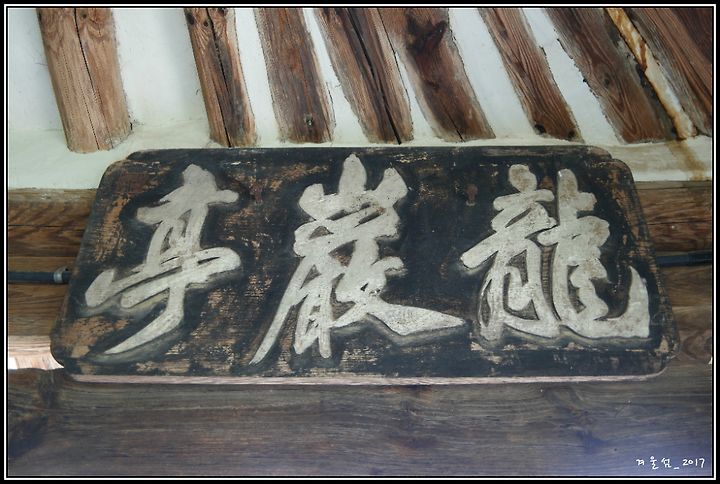 龍巖亭
겨울섬_2017